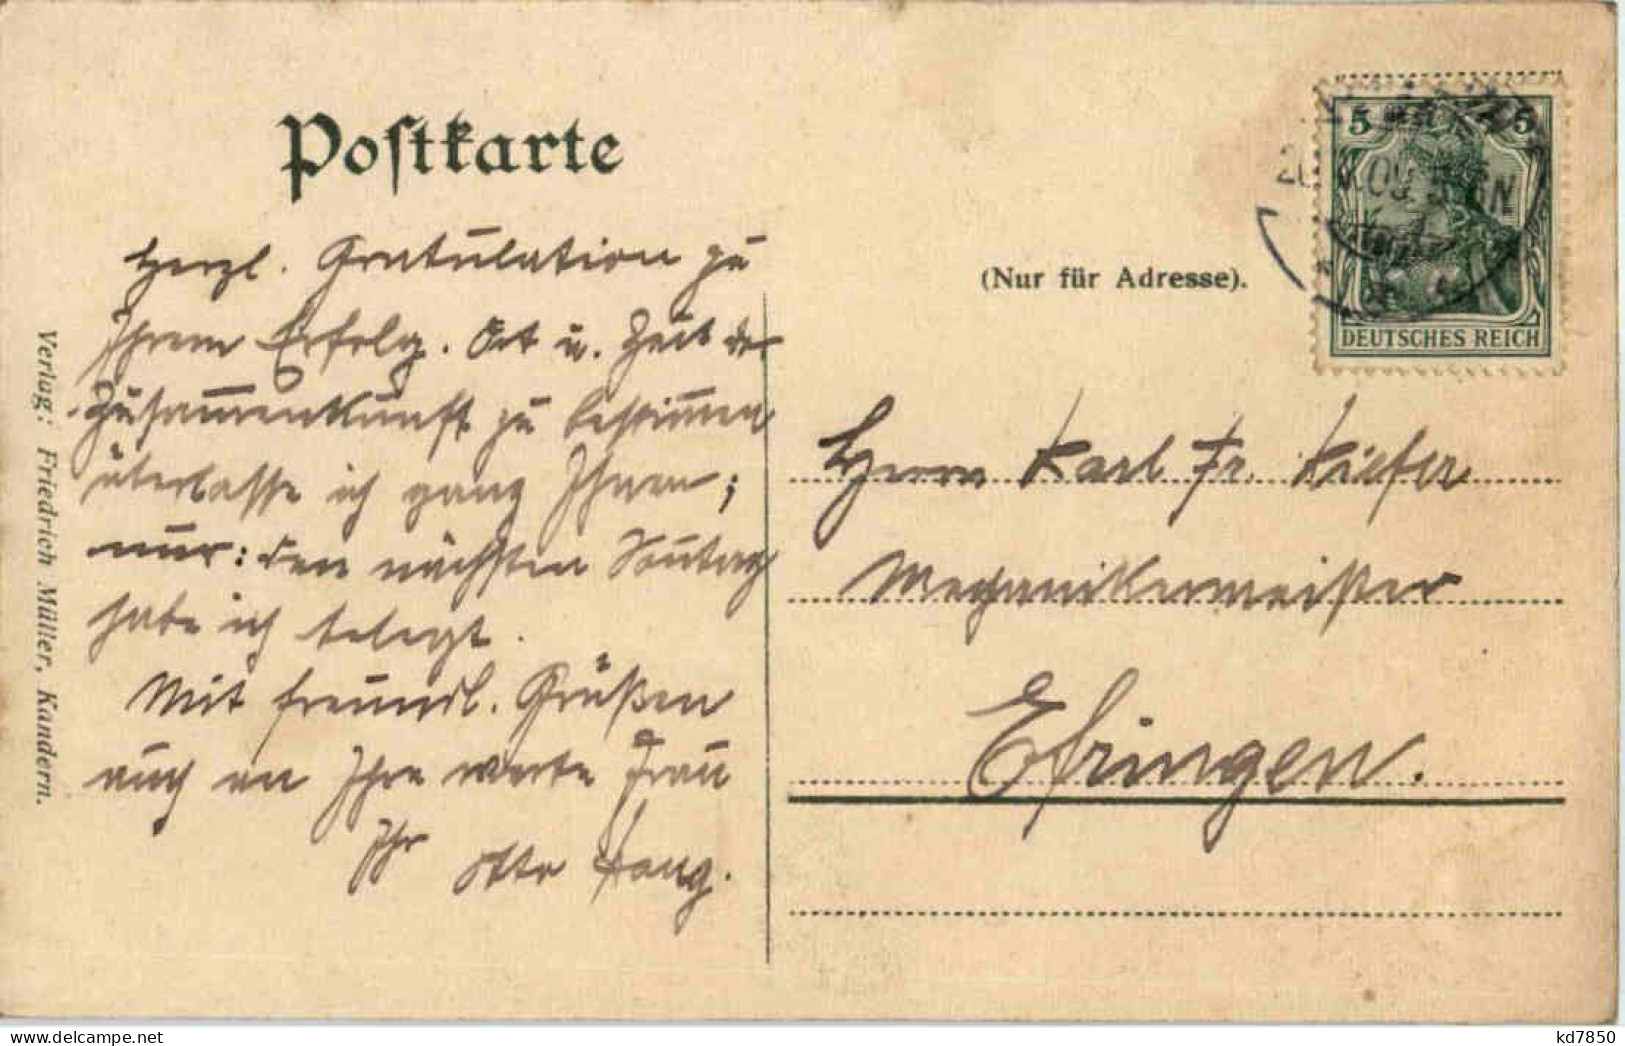 Postkarte
Herzl. Gratulation zu
Ihrem Erfolg. Ort u. Zeit der
Zusammenkunft zu bestimmen
überlasse ich ganz Ihnen;
nur: den nächsten Sonntag
habe ich belegt.
Mit freundl. Grüßen
auch an Ihre werte Frau
Ihr Otto
Verlag: Friedrich Müller, Kandern.
5 5
DEUTSCHES REICH
(Nur für Adresse).
Herrn Karl Fr. Kiefer
Mechanikermeister
Efringen.
delcampe.net
kd7850